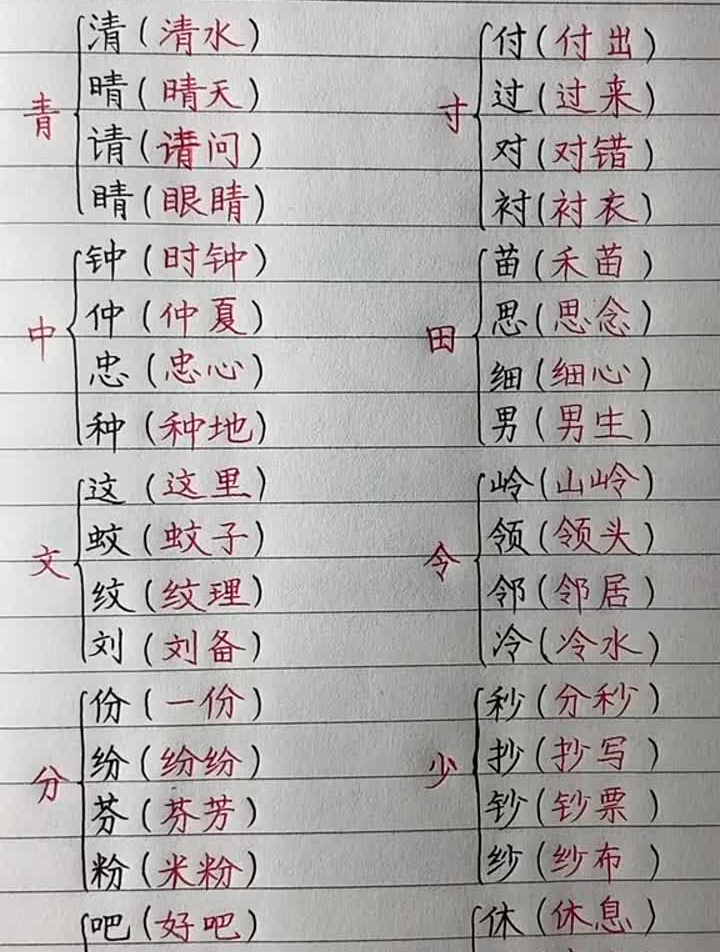 青
清（清水）
晴（晴天）
请（请问）
睛（眼睛）
中
钟（时钟）
仲（仲夏）
忠（忠心）
种（种地）
文
这（这里）
蚊（蚊子）
纹（纹理）
刘（刘备）
分
份（一份）
纷（纷纷）
芬（芬芳）
粉（米粉）
吧（好吧）
寸
付（付出）
过（过来）
对（对错）
衬（衬衣）
田
苗（禾苗）
思（思念）
细（细心）
男（男生）
令
岭（山岭）
领（领头）
邻（邻居）
冷（冷水）
少
秒（分秒）
抄（抄写）
钞（钞票）
纱（纱布）
休（休息）